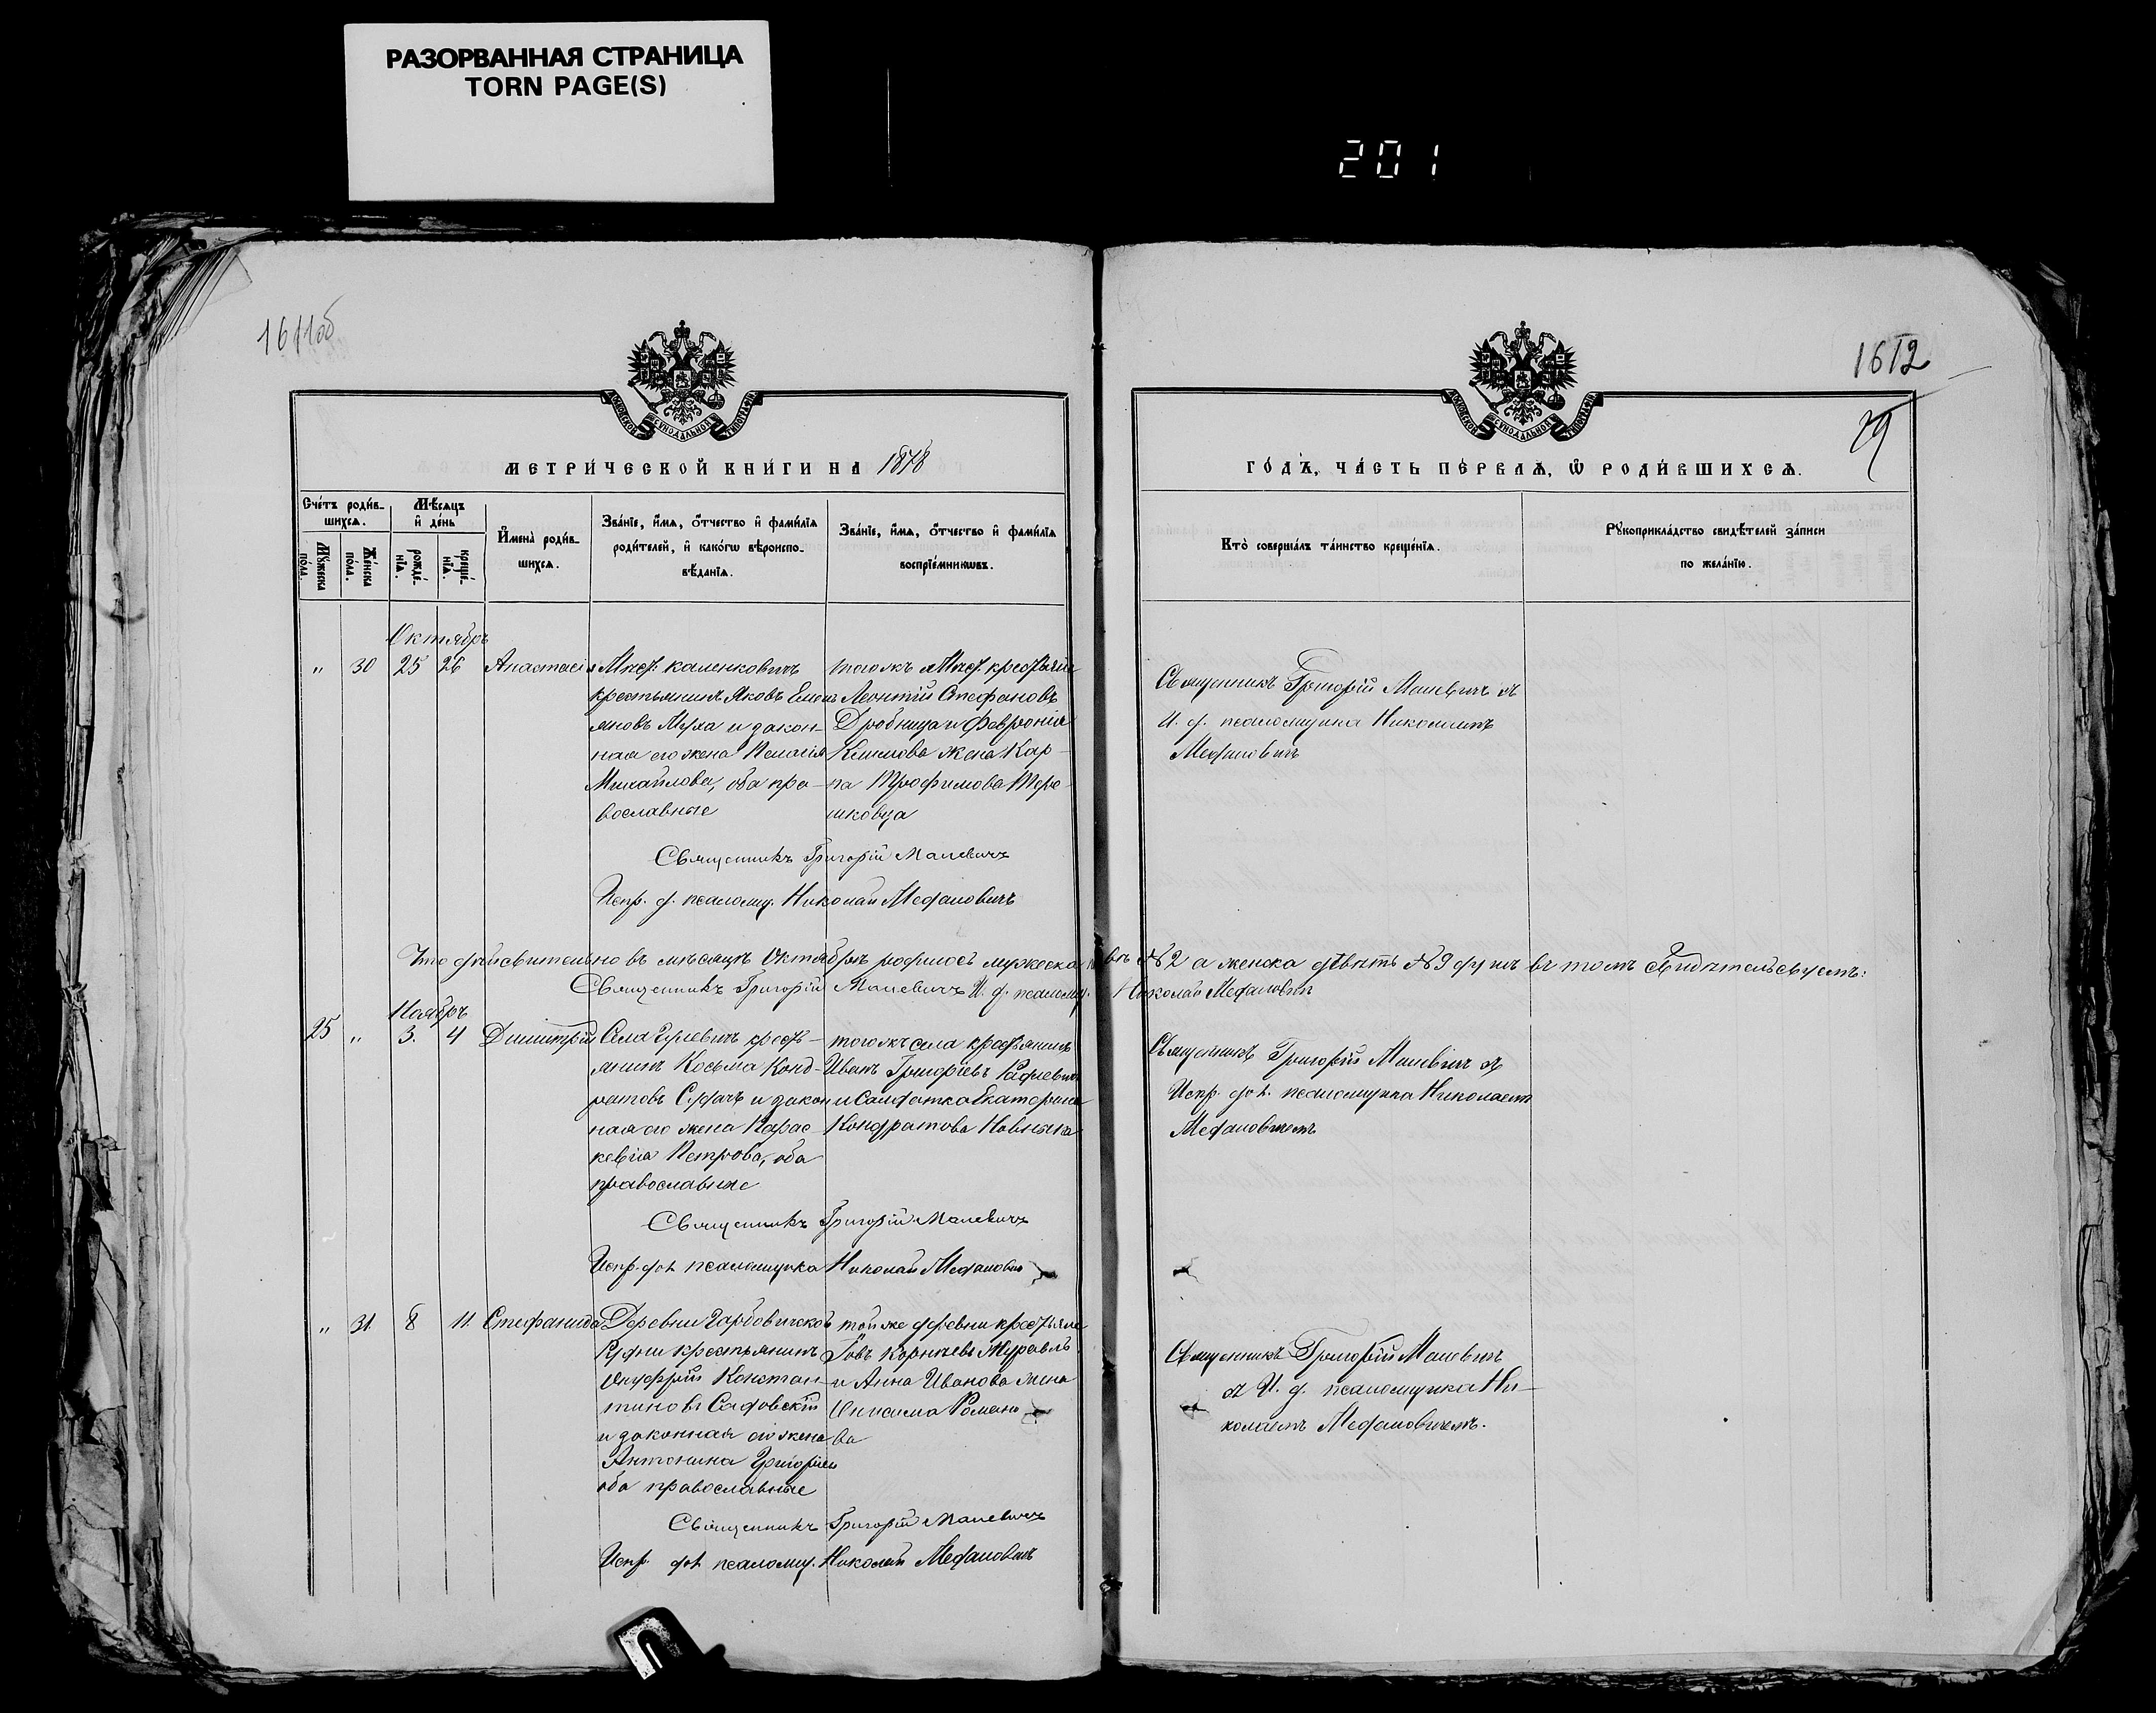 РАЗОРВАННАЯ СТРАНИЦА
TORN PAGE(S)
201
1611об
1612
29
МЕТРИ́ЧЕСКОЙ КНИ́ГИ НА 1878
ГО́ДЪ, ЧА́СТЬ ПЕ́РВАѦ, Ѽ РОДИ́ВШИХСѦ.
Сче́тъ роди́в-
шихсѧ.
Мꙋ́жеска по́ла.
Же́нска по́ла.
Мѣ́сѧцъ
и҆ де́нь
рожде́-
нїѧ.
креще́-
нїѧ.
И҆мена̀ роди́в-
шихсѧ.
Зва́нїе, и҆́мѧ, ѻ҆́тчество и҆ фами́лїѧ
роди́телей, и҆ како́гѡ вѣроиспо-
вѣ́данїѧ.
Зва́нїе, и҆́мѧ, ѻ҆́тчество и҆ фами́лїѧ
воспрїе́мникѡвъ.
Кто̀ соверша́лъ та́инство креще́нїѧ.
Рꙋкоприкла́дство свидѣ́телей за́писи
по жела́нїю.
Октябрь
" 30 25 26 Анастасія
Мѣст. каленковичъ
крестьянинъ Яковъ Емель
яновъ Муха и закон-
ная его жена Пелагія
Михайлова, оба пра-
вославные
тогожъ Мѣст. крестьяне
Леонтій Стефановъ
Дробница и Феврония
жена Кар-
па Трофимова Тере-
шковца
Священникъ Григорій Малевичъ
Испр. д. псаломщ. Николай Мефановичъ
Священникъ Григорій Малевичъ съ
И. д. псаломщика Николаемъ
Мефановичъ
Что дѣйствительно въ мѣсяцѣ Октябрѣ родилось мужеска
№ 2 а женска девять № 9 душъ въ томъ свидѣтельствуемъ:
Священникъ Григорій Малевичъ И. д. псаломщ. Николай Мефановичъ
Ноябрь
25 " 3. 4 Димитрій
Села крестъ-
янинъ Косьма Конд-
ратовъ и закон
ная его жена Парас-
кевіа Петрова, оба
православные
тогожъ села крестьянинъ
Иванъ Григоріевъ
и Солдатка Екатерина
Кондратова
Священникъ Григорій Малевичъ
Испр. дол. псаломщика Николай Мефановичъ
Священникъ Григорій Малевичъ съ
Испр. дол. псаломщика Николаемъ
Мефановичемъ
" 31. 8 11. Стефанида
Деревни Гарбовичской
Рудни крестьянинъ
Онуфрій Констан-
тиновъ Садовскій
и законная его жена
Антонина Григорьева
оба православные
той же деревни крестьяне
Іовъ Корнѣевъ Журавль
и Анна Иванова жена
Онисима Романо
ва
Священникъ Григорій Малевичъ
Испр. дол. псаломщ. Николай Мефановичъ
Священникъ Григорій Малевичъ
съ И. д. псаломщика Ни-
колаемъ Мефановичемъ.